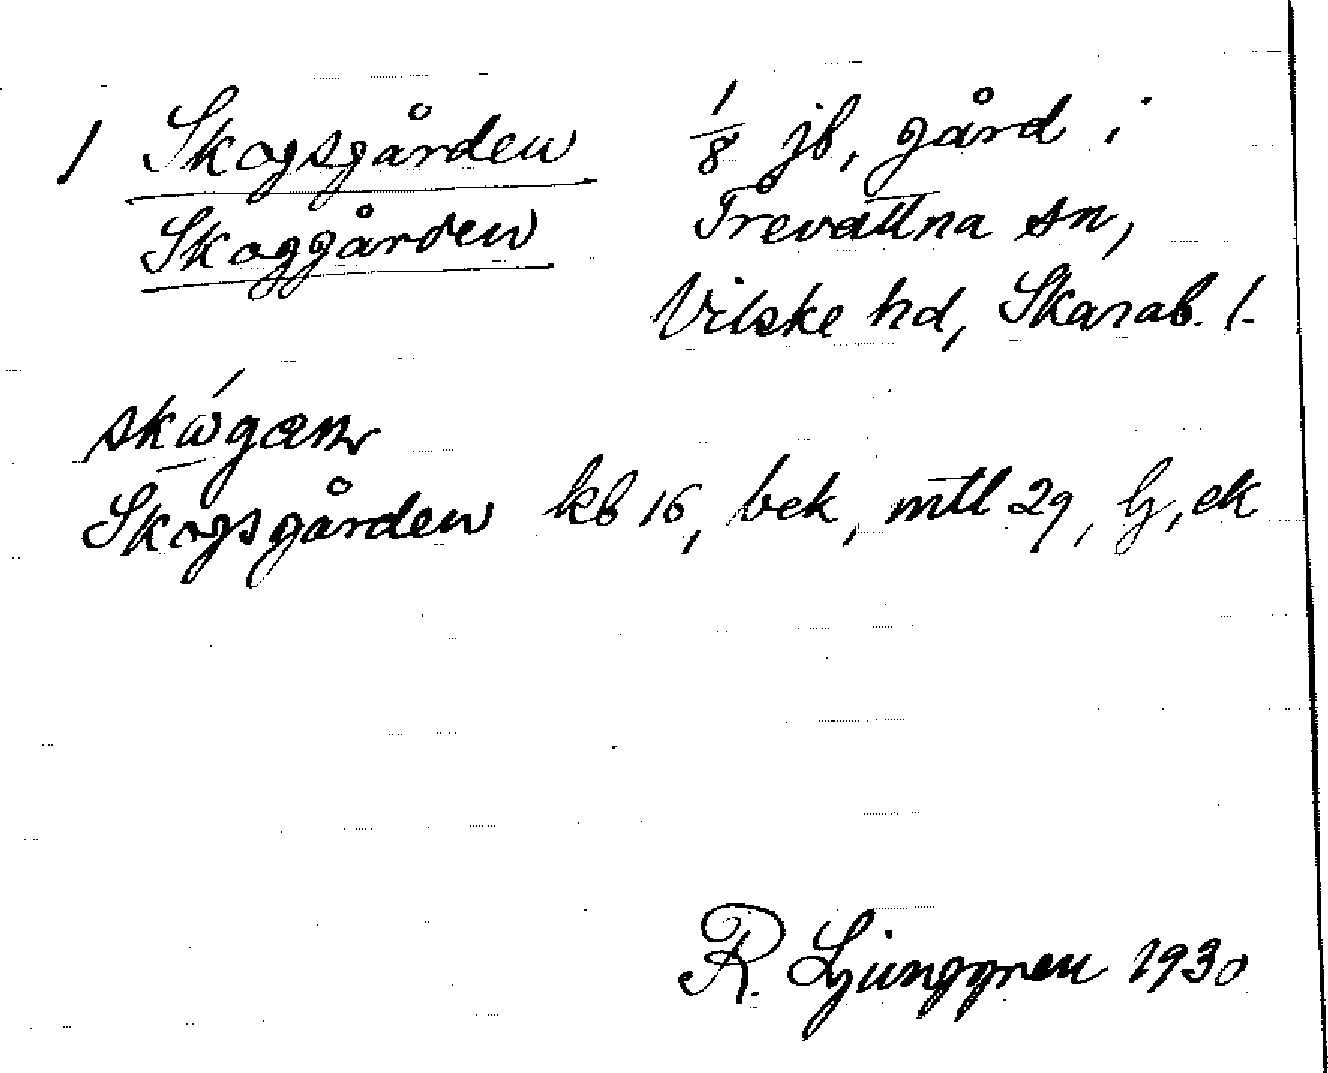 1 Skogsgården 1/8 jb, gård i
Skoggården Trevattna sn,
Vilske hd, Skarab. l.
Skogsgården kb 16, bek, mtl 29, lj, ek
R. Ljunggren 1930